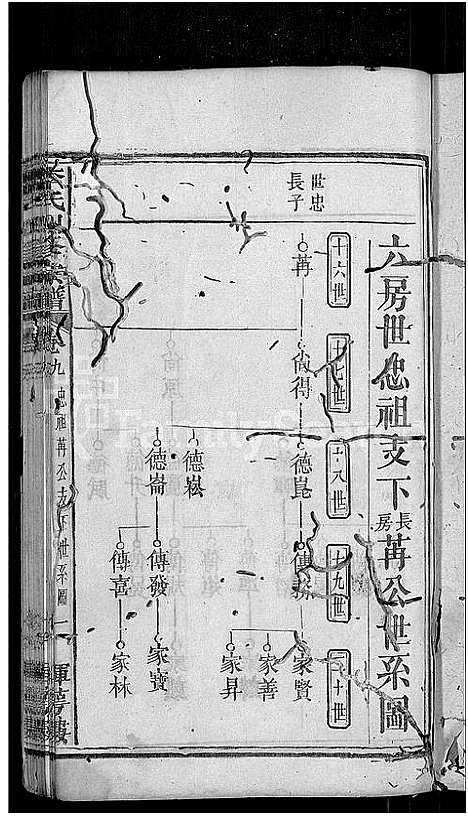 六房世忠祖支下長房苒公世系圖
十六世
十七世
十八世
十九世
二十世
世忠
長子
苒
尙得
德崑
傳
家賢
家善
家昇
德崧
德崙
傳發
家寶
傳喜
家林
氏 修宗譜
卷九
忠祖苒公支下世系圖
一